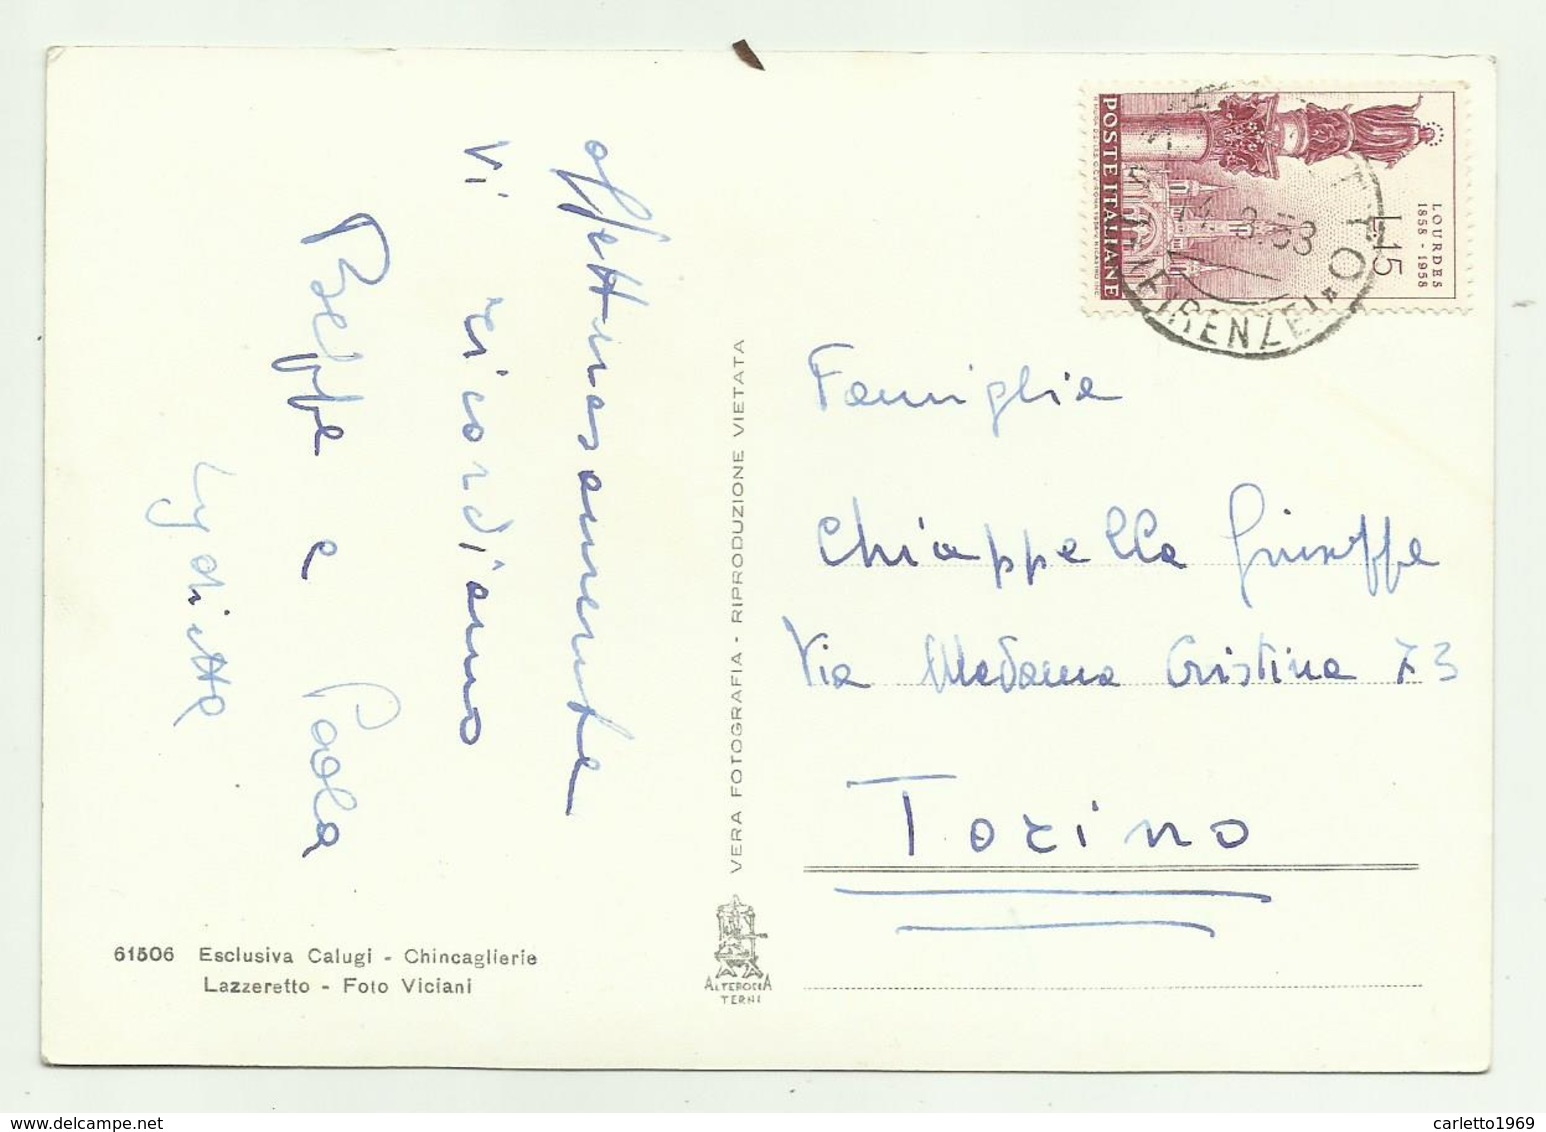 affettuosamente
vi ricordiamo
Beppe e Paola
Lydietta
61506 Esclusiva Calugi - Chincaglierie
Lazzeretto - Foto Viciani
VERA FOTOGRAFIA - RIPRODUZIONE VIETATA
ALTEROCCA
TERNI
POSTE ITALIANE
LOURDES
1858 - 1958
L. 15
8.58
FIRENZE
Famiglia
Chiappella Giuseppe
Via Madama Cristina 73
Torino
www.delcampe.net
carletto1969